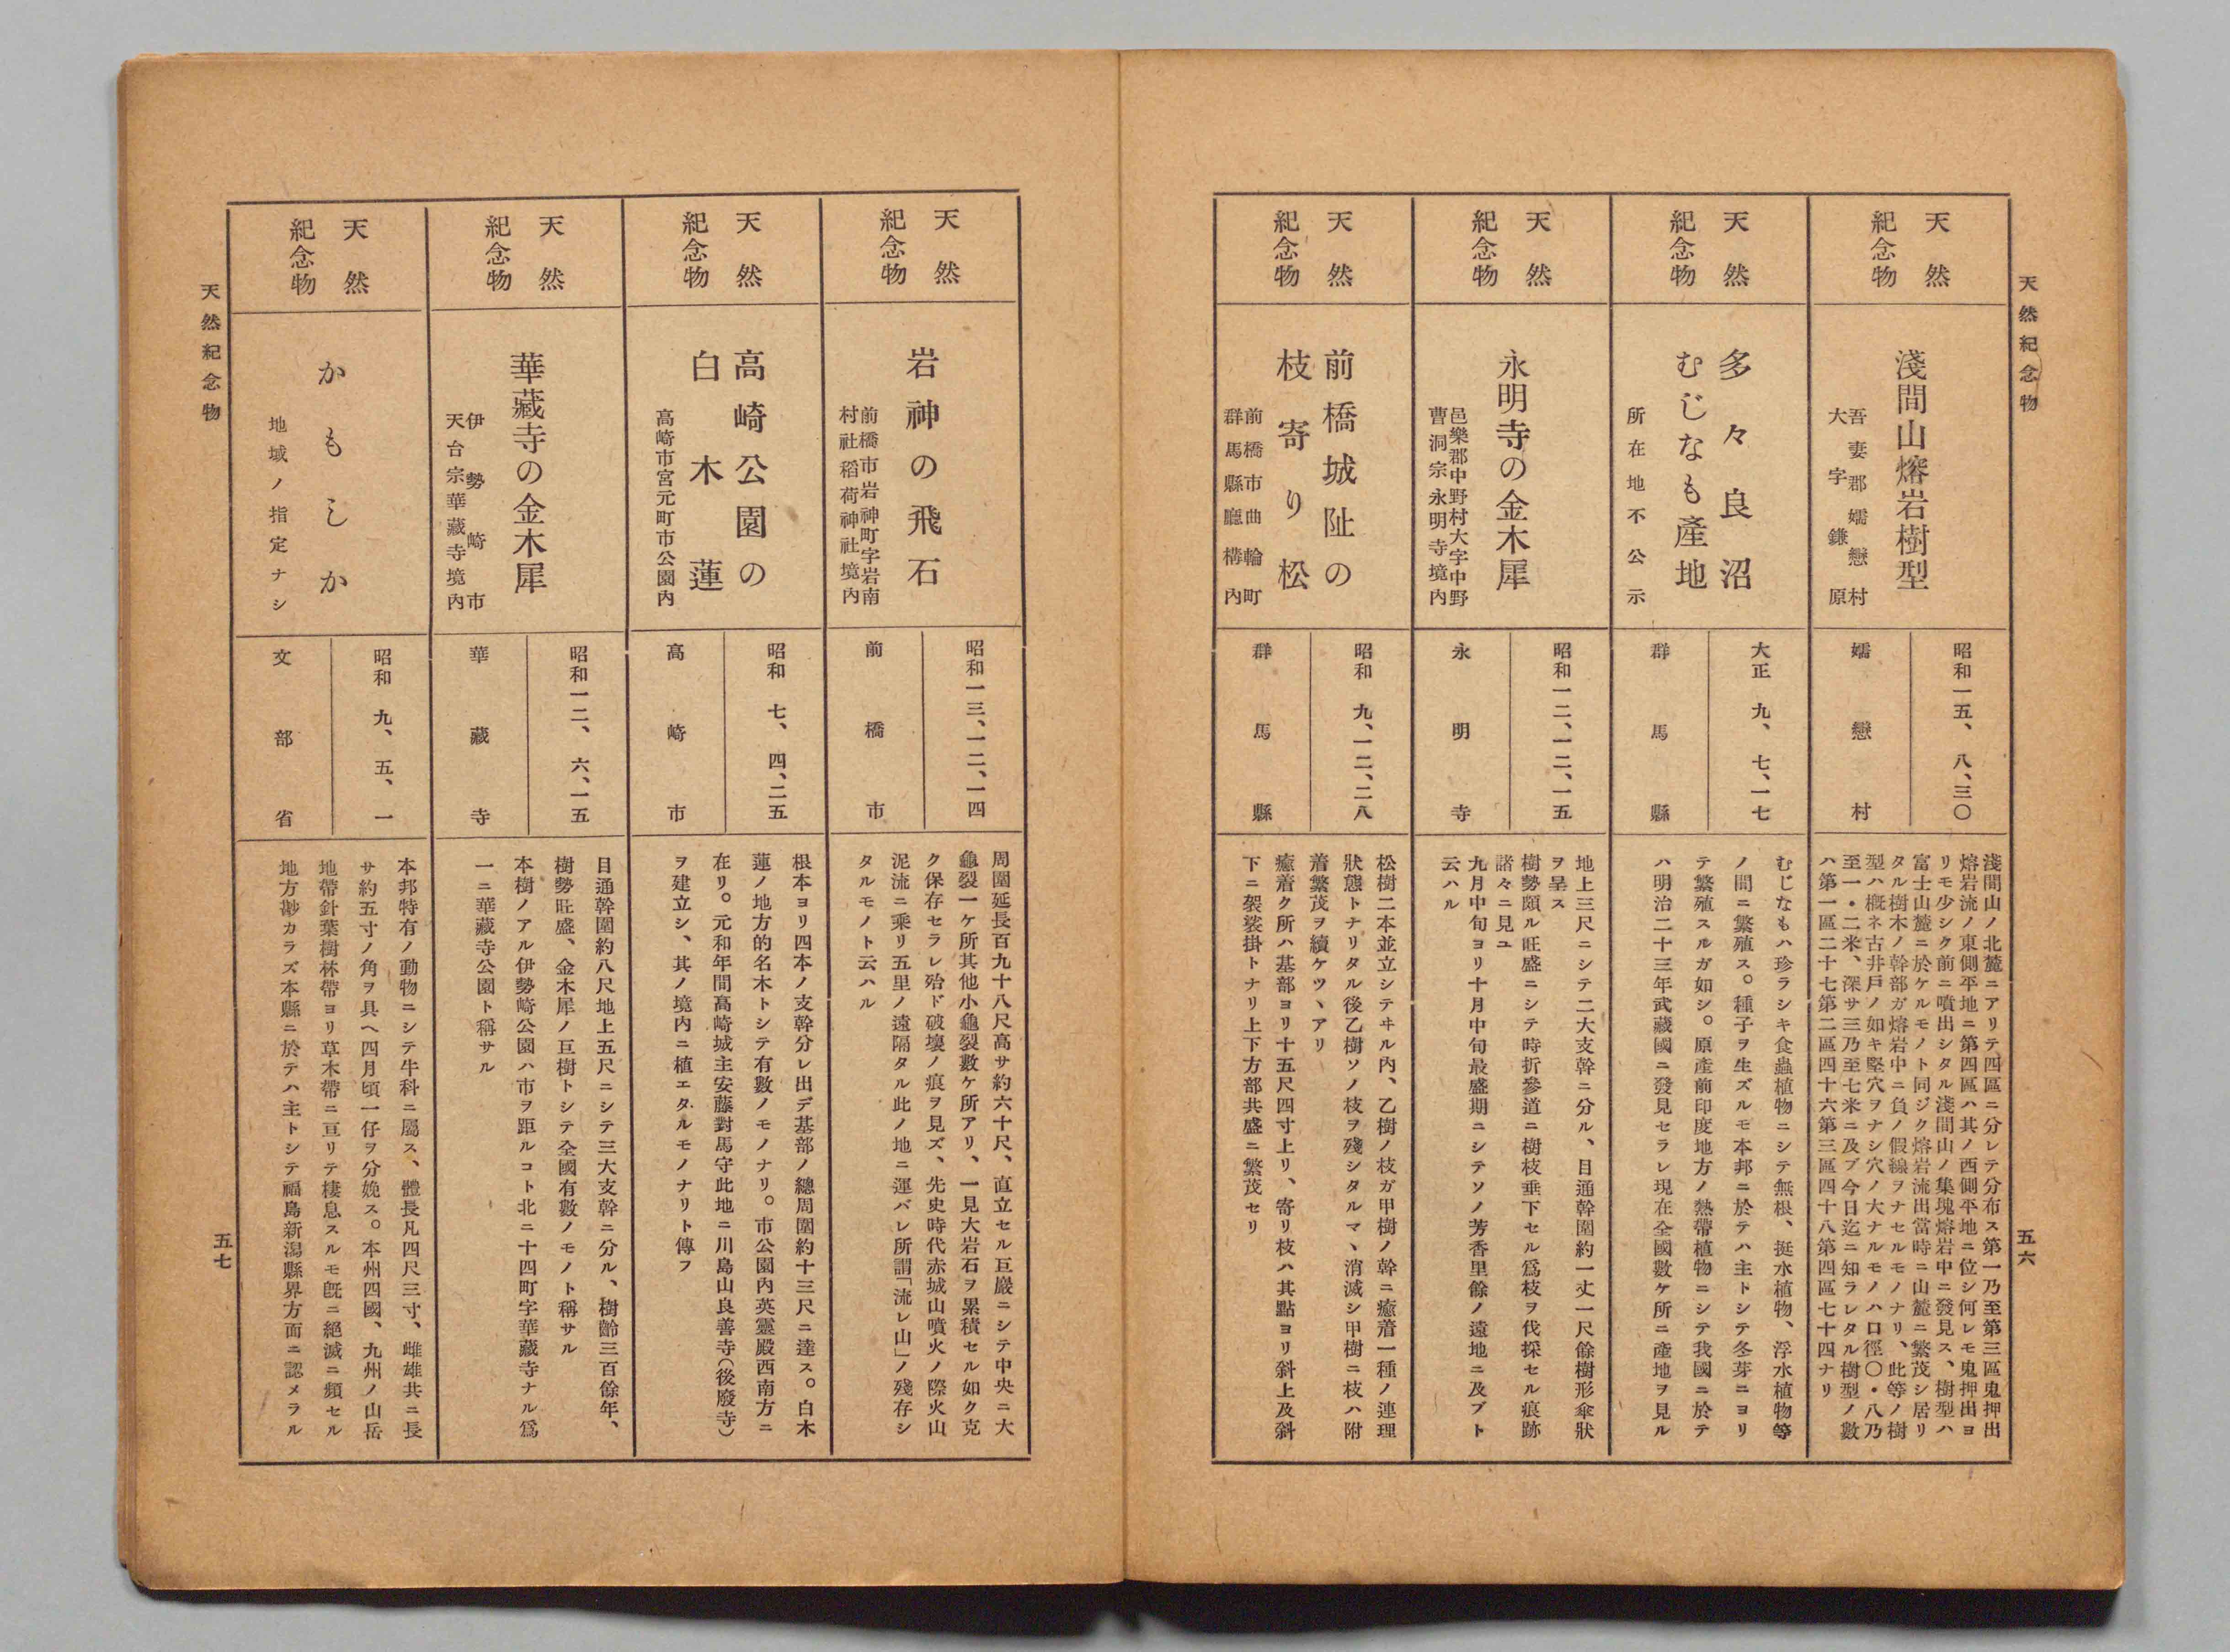 天然紀念物
天然
紀念物
淺間山熔岩樹型
吾妻郡嬬戀村
大字鎌原
昭和一五、八、三〇
嬬戀村
淺間山ノ北麓ニアリテ四區ニ分レテ分布ス第一乃至第三區鬼押出
熔岩流ノ東側平地ニ第四區ハ其ノ西側平地ニ位シ何レモ鬼押出ヨ
リモ少シク前ニ噴出シタル淺間山ノ集塊熔岩中ニ發見ス、樹型ハ
富士山麓ニ於ケルモノト同ジク熔岩流出當時ニ山麓ニ繁茂シ居リ
タル樹木ノ幹部ガ熔岩中ニ負ノ假線ヲナセルモノナリ、此等ノ樹
型ハ概ネ古井戸ノ如キ堅穴ヲナシ穴ノ大ナルモノハ口徑〇・八乃
至一・二米、深サ三乃至七米ニ及ブ今日迄ニ知ラレタル樹型ノ數
ハ第一區二十七第二區四十六第三區四十八第四區七十四ナリ
天然
紀念物
多々良沼
むじなも產地
所在地不公示
大正九、七、一七
群馬縣
むじなもハ珍ラシキ食蟲植物ニシテ無根、挺水植物、浮水植物等
ノ間ニ繁殖ス。種子ヲ生ズルモ本邦ニ於テハ主トシテ冬芽ニヨリ
テ繁殖スルガ如シ。原產前印度地方ノ熱帶植物ニシテ我國ニ於テ
ハ明治二十三年武藏國ニ發見セラレ現在全國數ケ所ニ產地ヲ見ル
天然
紀念物
永明寺の金木犀
邑樂郡中野村大字中野
曹洞宗永明寺境內
昭和一二、一二、一五
永明寺
地上三尺ニシテ二大支幹ニ分ル、目通幹圍約一丈一尺餘樹形傘狀
ヲ呈ス
樹勢頗ル旺盛ニシテ時折參道ニ樹枝垂下セル爲枝ヲ伐採セル痕跡
諸々ニ見ユ
九月中旬ヨリ十月中旬最盛期ニシテソノ芳香里餘ノ遠地ニ及ブト
云ハル
天然
紀念物
前橋城阯の
枝寄り松
前橋市曲輪町
群馬縣廳構內
昭和九、一二、二八
群馬縣
松樹二本並立シテヰル內、乙樹ノ枝ガ甲樹ノ幹ニ癒着一種ノ連理
狀態トナリタル後乙樹ソノ枝ヲ殘シタルマヽ消滅シ甲樹ニ枝ハ附
着繁茂ヲ續ケツヽアリ
癒着ク所ハ基部ヨリ十五尺四寸上リ、寄リ枝ハ其點ヨリ斜上及斜
下ニ袈裟掛トナリ上下方部共盛ニ繁茂セリ
五六
天然
紀念物
岩神の飛石
前橋市岩神町字岩南
村社稻荷神社境內
昭和一三、一二、一四
前橋市
周圍延長百九十八尺高サ約六十尺、直立セル巨巖ニシテ中央ニ大
龜裂一ケ所其他小龜裂數ケ所アリ、一見大岩石ヲ累積セル如ク克
ク保存セラレ殆ド破壞ノ痕ヲ見ズ、先史時代赤城山噴火ノ際火山
泥流ニ乘リ五里ノ遠隔タル此ノ地ニ運バレ所謂「流レ山」ノ殘存シ
タルモノト云ハル
天然
紀念物
高崎公園の
白木蓮
高崎市宮元町市公園內
昭和七、四、二五
高崎市
根本ヨリ四本ノ支幹分レ出デ基部ノ總周圍約十三尺ニ達ス。白木
蓮ノ地方的名木トシテ有數ノモノナリ。市公園內英靈殿西南方ニ
在リ。元和年間高崎城主安藤對馬守此地ニ川島山良善寺(後廢寺)
ヲ建立シ、其ノ境內ニ植エタルモノナリト傳フ
天然
紀念物
華藏寺の金木犀
伊勢崎市
天台宗華藏寺境內
昭和一二、六、一五
華藏寺
目通幹圍約八尺地上五尺ニシテ三大支幹ニ分ル、樹齡三百餘年、
樹勢旺盛、金木犀ノ巨樹トシテ全國有數ノモノト稱サル
本樹ノアル伊勢崎公園ハ市ヲ距ルコト北ニ十四町字華藏寺ナル爲
一ニ華藏寺公園ト稱サル
天然
紀念物
かもしか
地域ノ指定ナシ
昭和九、五、一
文部省
本邦特有ノ動物ニシテ牛科ニ屬ス、體長凡四尺三寸、雌雄共ニ長
サ約五寸ノ角ヲ具ヘ四月頃一仔ヲ分娩ス。本州四國、九州ノ山岳
地帶針葉樹林帶ヨリ草木帶ニ亘リテ棲息スルモ旣ニ絕滅ニ頻セル
地方尠カラズ本縣ニ於テハ主トシテ福島新潟縣界方面ニ認メラル
天然紀念物
五七